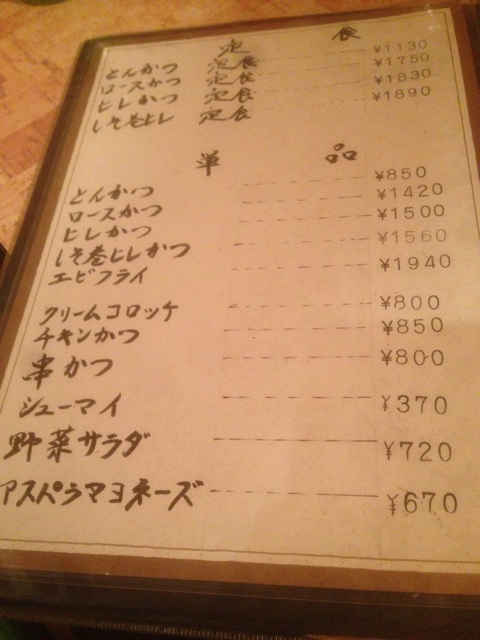 定食
とんかつ 定食 ¥1130
ロースかつ 定食 ¥1750
ヒレかつ 定食 ¥1830
しそ巻ヒレ 定食 ¥1890
単品
とんかつ ¥850
ロースかつ ¥1420
ヒレかつ ¥1500
しそ巻ヒレかつ ¥1560
エビフライ ¥1940
クリームコロッケ ¥800
チキンかつ ¥850
串かつ ¥800
シューマイ ¥370
野菜サラダ ¥720
アスパラマヨネーズ ¥670